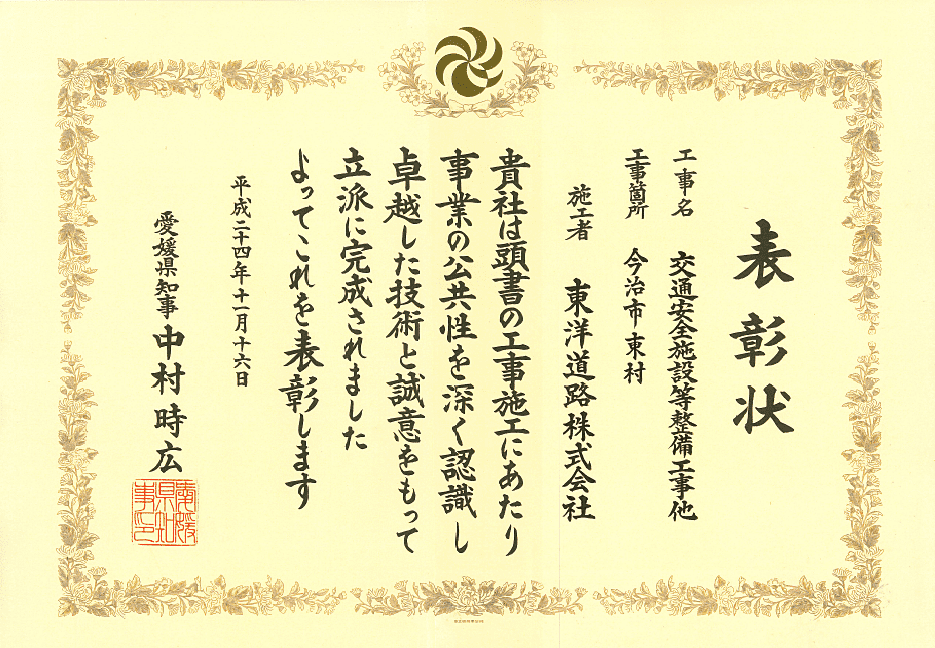 表彰状
工事名 交通安全施設等整備工事他
工事箇所 今治市東村
施工者 東洋道路株式会社
貴社は頭書の工事施工にあたり
事業の公共性を深く認識し
卓越した技術と誠意をもって
立派に完成されました
よってこれを表彰します
平成二十四年十一月十六日
愛媛県知事 中村時広
愛媛
県知
事印